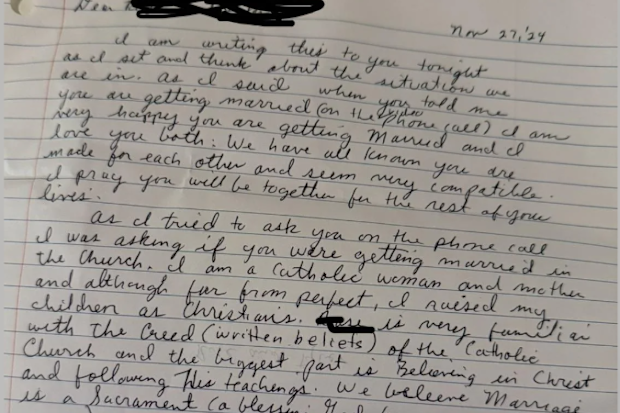 Dear
Nov 27, '24
I am writing this to you tonight
as I set and think about the situation we
are in. As I said when you told me
you are getting married (on the video phone call) I am
very happy you are getting Married and I
love you both. We have all known you are
made for each other and seem very compatible.
I pray you will be together for the rest of your
lives.
As I tried to ask you on the phone call
I was asking if you were getting married in
the Church. I am a Catholic woman and mother
and although far from perfect, I raised my
children as Christians. is very familiar
with The Creed (written beliefs) of the Catholic
Church and the biggest part is Believing in Christ
and following His teachings. We believe Marriage
is a Sacrament (a blessing